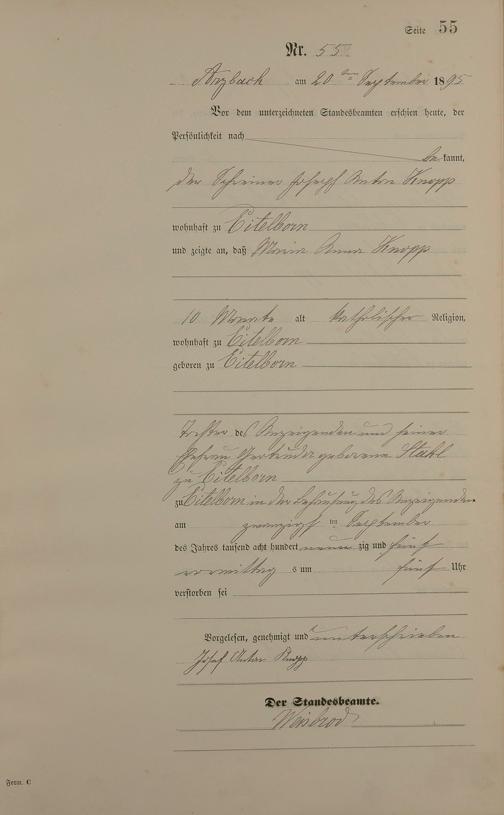 Seite 55
Nr. 55
Arzbach am 20ten September 1895
Vor dem unterzeichneten Standesbeamten erschien heute, der
Persönlichkeit nach
be kannt,
der Schreiner Joseph Anton Knopp
wohnhaft zu Eitelborn
und zeigte an, daß Maria Anna Knopp
10 Monate alt katholischer Religion,
wohnhaft zu Eitelborn
geboren zu Eitelborn
Tochter des Anzeigenden und seiner
Ehefrau Gertrud geborene Stahl
zu Eitelborn
zu Eitelborn in der Behausung des Anzeigenden
am zwanzigsten September
des Jahres tausend acht hundert neun zig und fünf
vormittags um fünf Uhr
verstorben sei
Vorgelesen, genehmigt und unterschrieben
Josef Anton Knopp
Der Standesbeamte.
Weisbrod
Form. C